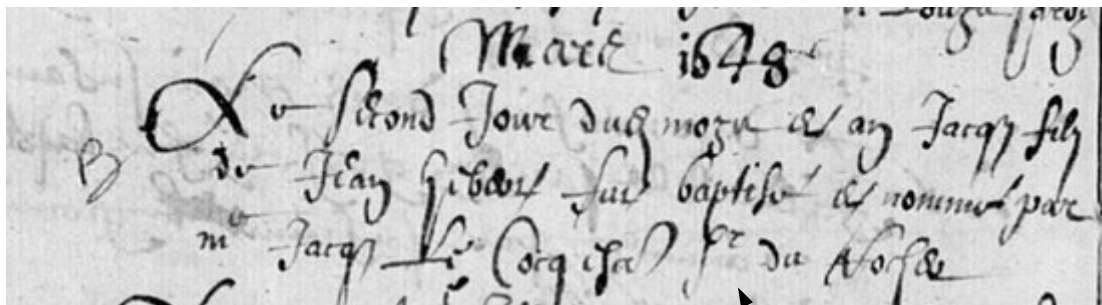 Mars 1648
Le second Jour dud moys et an Jacqs filz
B de Jean hebert fut baptisé et nommé par
me Jacqs Le Cocq sr du